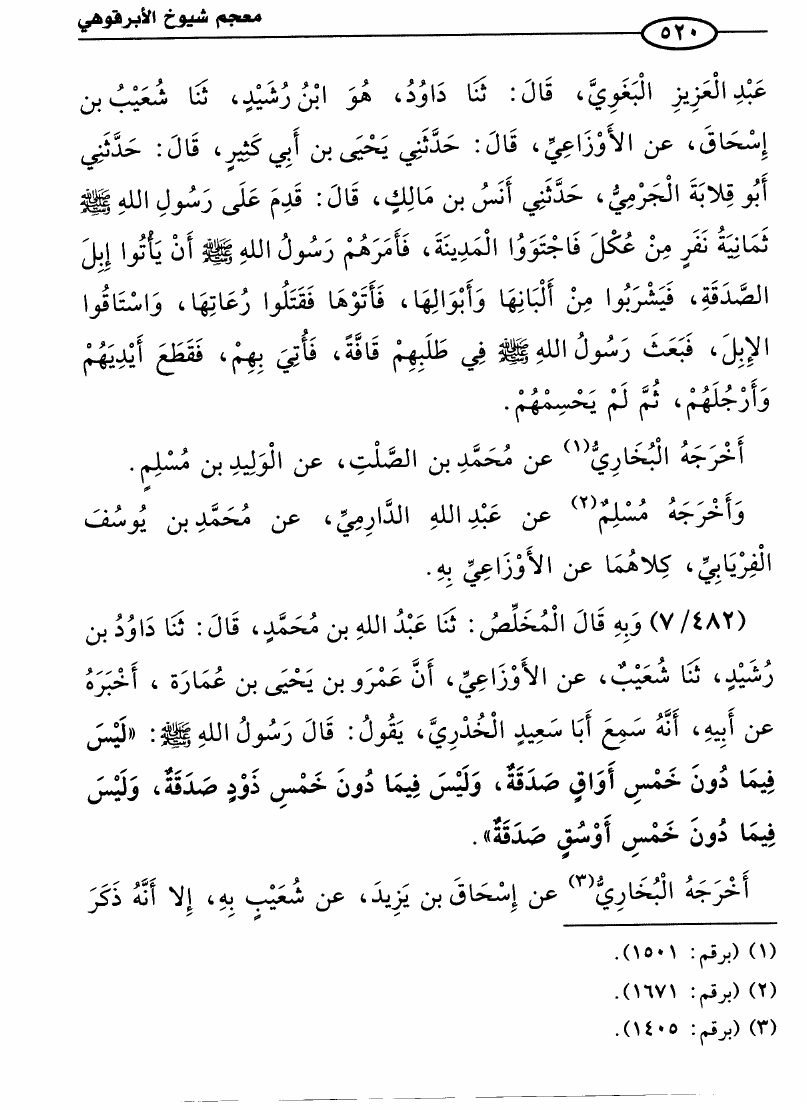 معجم شيوخ الأبرقوهي
٥٢٠
عَبْدِ الْعَزِيزِ الْبَغَوِيَّ، قَالَ: ثَنَا دَاوُدُ، هُوَ ابْنُ رُشَيْدٍ، ثَنَا شُعَيْبُ بن
إِسْحَاقَ، عن الأَوْزَاعِيِّ، قَالَ: حَدَّثَنِي يَحْيَى بن أَبِي كَثِيرٍ، قَالَ: حَدَّثَنِي
أَبُو قِلابَةَ الْجَرْمِيُّ، حَدَّثَنِي أَنَسُ بن مَالِكٍ، قَالَ: قَدِمَ عَلَى رَسُولِ اللهِ ﷺ
ثَمَانِيَةُ نَفَرٍ مِنْ عُكْلَ فَاجْتَوَوُا الْمَدِينَةَ، فَأَمَرَهُمْ رَسُولُ اللهِ ﷺ أَنْ يَأْتُوا إِبِلَ
الصَّدَقَةِ، فَيَشْرَبُوا مِنْ أَلْبَانِهَا وَأَبْوَالِهَا، فَأَتَوْهَا فَقَتَلُوا رُعَاتِهَا، وَاسْتَاقُوا
الإِبِلَ، فَبَعَثَ رَسُولُ اللهِ ﷺ فِي طَلَبِهِمْ قَافَّةً، فَأُتِيَ بِهِمْ، فَقَطَعَ أَيْدِيَهُمْ
وَأَرْجُلَهُمْ، ثُمَّ لَمْ يَحْسِمْهُمْ.
أَخْرَجَهُ الْبُخَارِيُّ(١) عن مُحَمَّدِ بن الصَّلْتِ، عن الْوَلِيدِ بن مُسْلِمٍ.
وَأَخْرَجَهُ مُسْلِمٌ(٢) عن عَبْدِ اللهِ الدَّارِمِيِّ، عن مُحَمَّدِ بن يُوسُفَ
الْفِرْيَابِيِّ، كِلاهُمَا عن الأَوْزَاعِيِّ بِهِ.
(٧/٤٨٢) وَبِهِ قَالَ الْمُخَلِّصُ: ثَنَا عَبْدُ اللهِ بن مُحَمَّدٍ، قَالَ: ثَنَا دَاوُدُ بن
رُشَيْدٍ، ثَنَا شُعَيْبٌ، عن الأَوْزَاعِيِّ، أَنَّ عَمْرَو بن يَحْيَى بن عُمَارَةَ ، أَخْبَرَهُ
عن أَبِيهِ، أَنَّهُ سَمِعَ أَبَا سَعِيدٍ الْخُدْرِيَّ، يَقُولُ: قَالَ رَسُولُ اللهِ ﷺ: «لَيْسَ
فِيمَا دُونَ خَمْسِ أَوَاقٍ صَدَقَةٌ، وَلَيْسَ فِيمَا دُونَ خَمْسِ ذَوْدٍ صَدَقَةٌ، وَلَيْسَ
فِيمَا دُونَ خَمْسِ أَوْسُقٍ صَدَقَةٌ».
أَخْرَجَهُ الْبُخَارِيُّ(٣) عن إِسْحَاقَ بن يَزِيدَ، عن شُعَيْبٍ بِهِ، إِلا أَنَّهُ ذَكَرَ
(١) (برقم: ١٥٠١).
(٢) (برقم: ١٦٧١).
(٣) (برقم: ١٤٠٥).